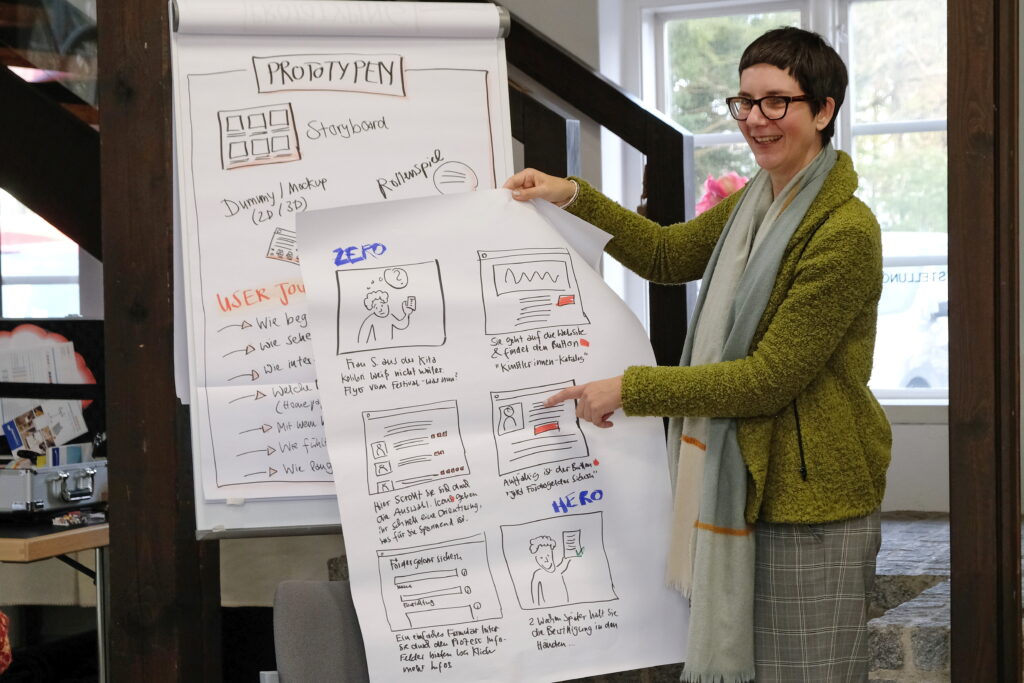 PROTOTYPEN
Storyboard
Rollenspiel
Dummy / Mockup
(2D / 3D)
USER JOU
Wie beg
Wie sehe
Wie inter
Welche
(Homep
Mit wem
Wie fühl
Wie lang
ZERO
?
Frau S. aus der Kita
weiß nicht weiter.
Flyer vom Festival -
Sie geht auf die Website
& findet den Button
"Künstler:innen-Katalog"
Hier scrollt sie sich durch
die Auswahl. Icons geben
ihr schnell eine Orientierung,
was für sie spannend ist.
Auffällig ist der Button
"Jetzt Fördergelder sichern"
Fördergelder sichern
Name
Einrichtung
Ein einfaches Formular leitet
sie durch den Prozess. Info-
Felder bieten bei Klick
mehr Infos
HERO
2 Wochen später hält sie
die Bestätigung in den
Händen...
STELLUNG